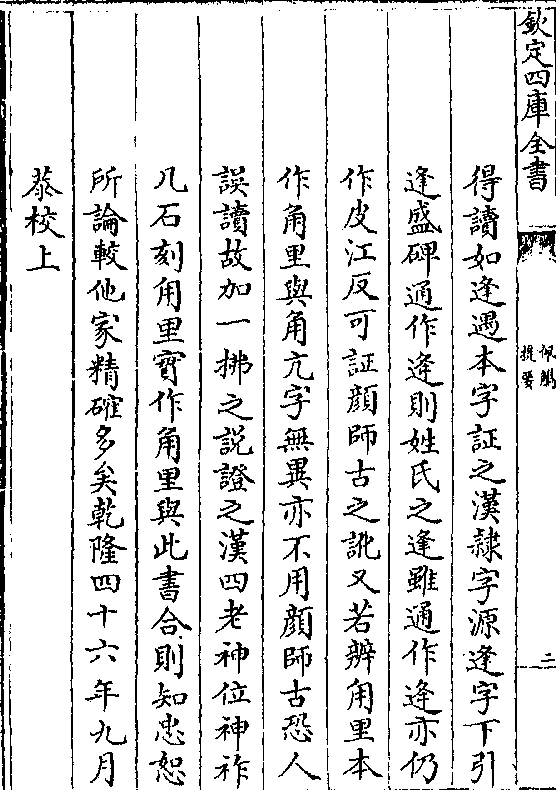 欽定四庫全書
佩觿
提要
二
得讀如逢遇本字証之漢隸字源逢字下引
逢盛碑通作逄則姓氏之逄雖通作逢亦仍
作皮江反可証顔師古之訛又若辨甪里本
作角里與角亢字無異亦不用顔師古恐人
誤讀故加一拂之説證之漢四老神位神祚
几石刻甪里實作角里與此書合則知忠恕
所論較他家精確多矣乾隆四十六年九月
恭校上